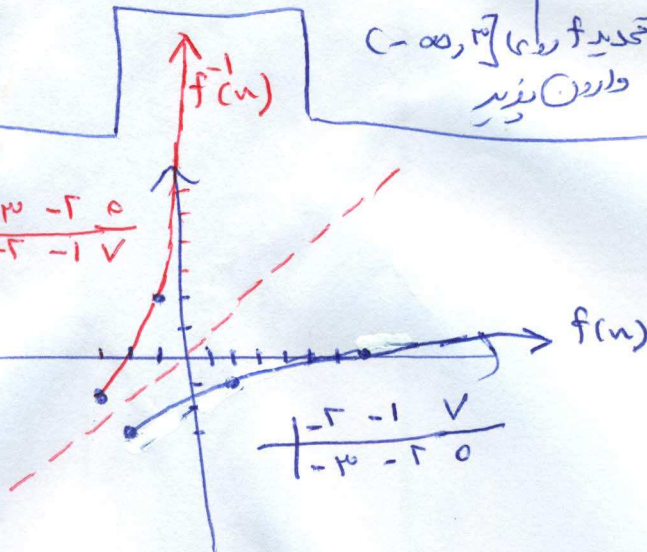 تحدید f روی (-∞, ۳]
وارون پذیر
f⁻¹(n)
۳ -۲ ۰
-۲ -۱ ۷
f(n)
-۲ -۱ ۷
-۳ -۲ ۰